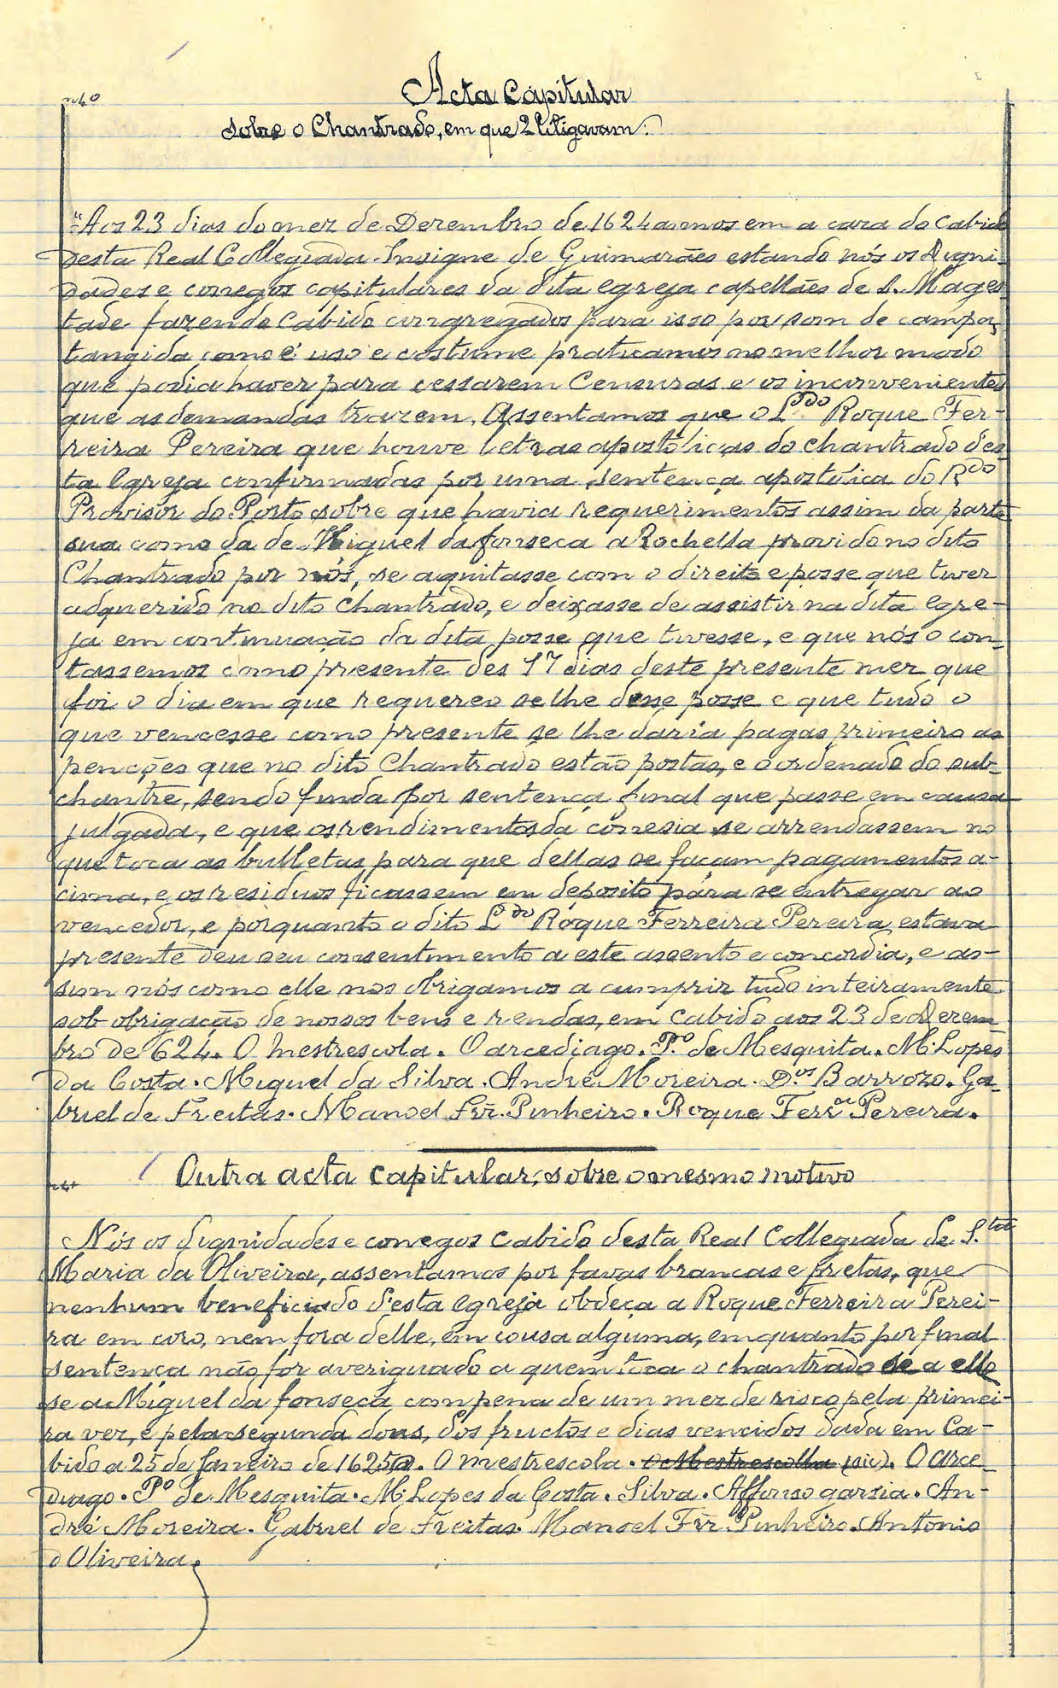 nº40
Acta Capitular
sobre o Chantrado, em que 2 litigavam:
"Aos 23 dias do mez de Dezembro de 1624 annos em a caza do Cabido
desta Real Collegiada Insigne de Guimarães estando nós os Digni-
dades e conegos capitulares da dita egreja capellães de S. Mages-
tade fazendo Cabido congregados para isso por som de campa
tangida como é uso e costume praticamos no melhor modo
que podia haver para cessarem Censuras e os inconvenientes
que as demandas trazem. Assentamos que o L.do Roque Fer-
reira Pereira que houve letras apostolicas do chantrado des-
ta Egreja confirmadas por uma sentença apostolica do Rdo
Provisor do Porto sobre que havia requerimentos assim da parte
sua como da de Miguel da fonseca a Rochella provido no dito
Chantrado por nós, se aquitasse com o direito e posse que tiver
adquerido no dito chantrado, e deixasse de assistir na dita egre-
ja em continuação da dita posse que tivesse, e que nós o con-
tassemos como presente des 17 dias deste presente mez que
foi o dia em que requereo se lhe desse posse e que tudo o
que vencesse como presente se lhe daria pagas primeiro as
penções que no dito Chantrado estão postas, e o ordenado do sub-
chantre, sendo finda por sentença final que passe em causa
julgada, e que os rendimentos da conesia se arrendassem no
que toca as bulletas para que dellas se façam pagamentos a-
cima, e os residuos ficassem em deposito para se entregar ao
vencedor, e porquanto o dito L.do Roque Ferreira Pereira estava
presente deu seu consentimento a este assento e concordia, e as-
sim nós como elle nos obrigamos a cumprir tudo inteiramente
sob obrigação de nossos bens e rendas, em Cabido aos 23 de Dezem-
bro de 624. O mestrescola. O arcediago. P.º de Mesquita. M. Lopes
da Costa. Miguel da Silva. André Moreira. D.os Barrozo. Ga-
briel de Freitas. Manoel Frz. Pinheiro. Roque Ferr.a Pereira.
Outra acta capitular, sobre o mesmo motivo
Nós os dignidades e conegos Cabido desta Real Collegiada de S.ta
Maria da Oliveira, assentamos por favas brancas e pretas, que
nenhum beneficiado d'esta Egreja obdeça a Roque Ferreira Perei-
ra em coro, nem fora delle, em cousa alguma, emquanto por final
sentença não for averiguado a quem toca o chantrado se a elle
se a Miguel da fonseca com pena de um mez de risco pela primei-
ra vez, e pela segunda dous, dos fructos e dias vencidos dada em Ca-
bido a 25 de Janeiro de 1625. O mestrescola. o Mestrescolha (sic). O arce-
diago. Pº de Mesquita. M. Lopes da Costa. Silva. Affonso garsia. An-
dré Moreira. Gabriel de Freitas. Manoel Frz. Pinheiro. Antonio
d'Oliveira.